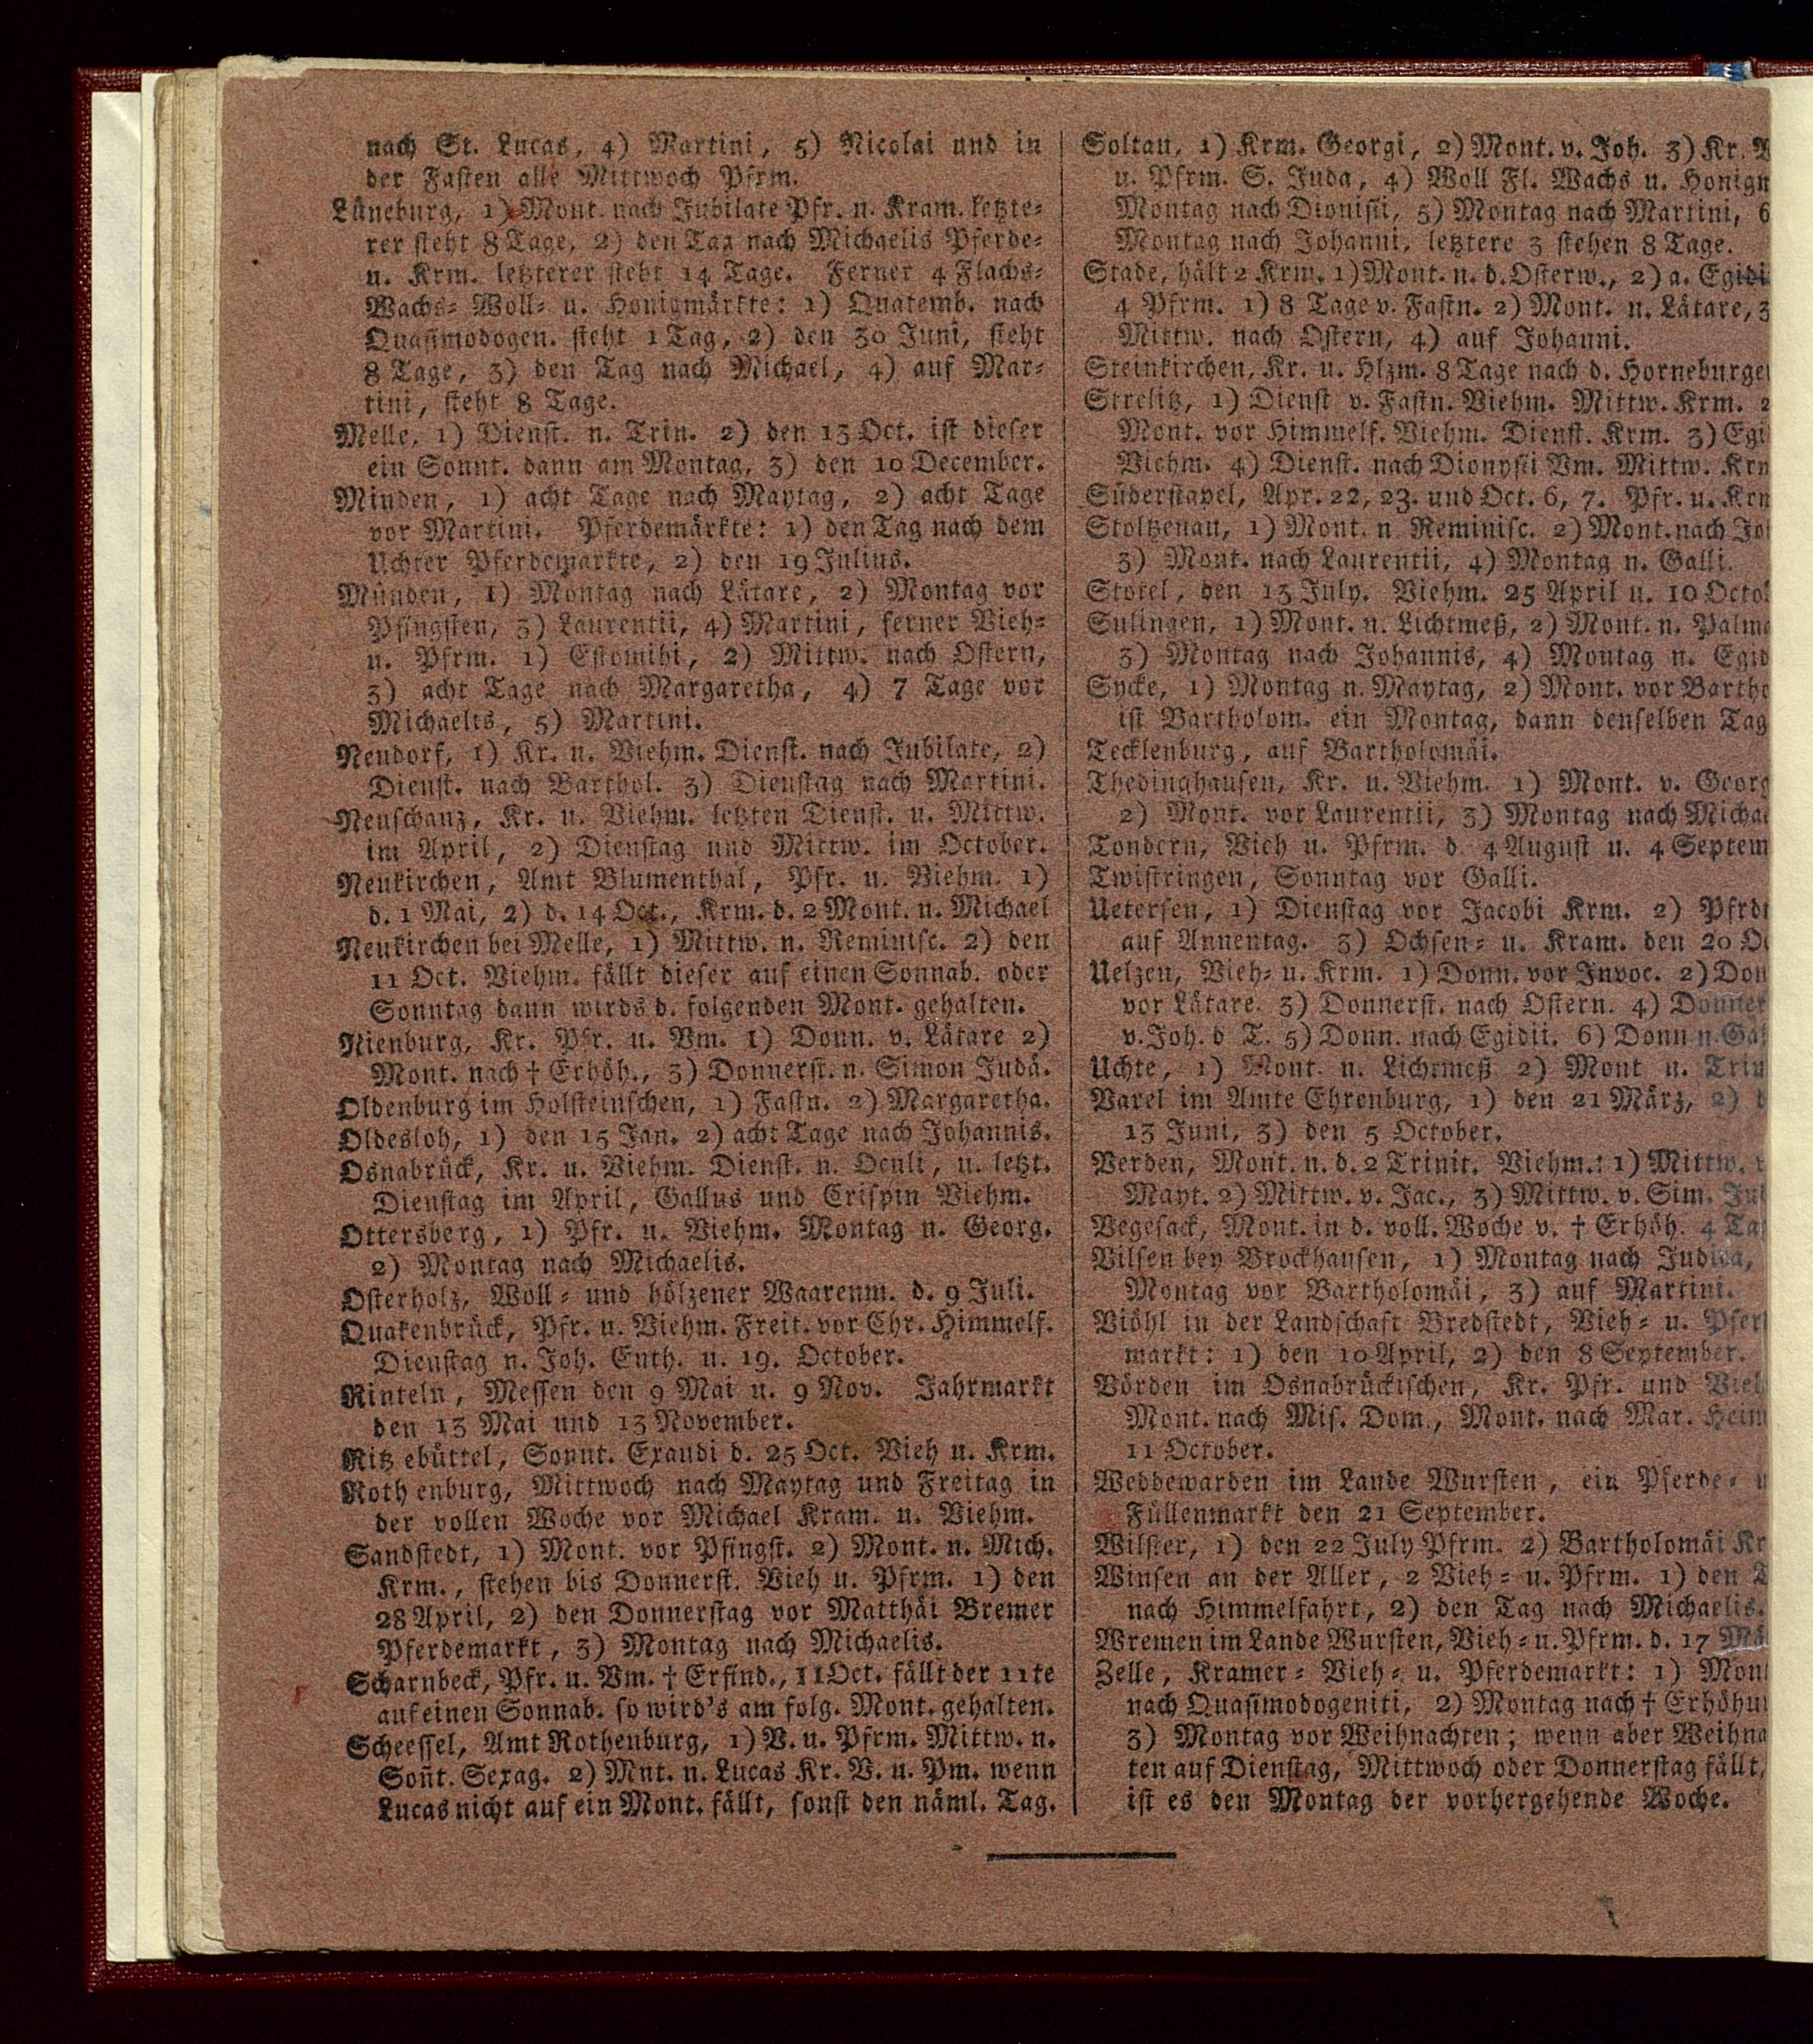 nach St. Lucas, 4) Martini, 5) Nicolai und in
der Fasten alle Mittwoch Pfrm.
Lüneburg, 1) Mont. nach Jubilate Pfr. u. Kram. letzte=
rer steht 8 Tage, 2) den Tag nach Michaelis Pferde=
u. Krm. letzterer steht 14 Tage. Ferner 4 Flachs=
Wachs= Woll= u. Honigmärkte: 1) Quatemb. nach
Quasimodogen. steht 1 Tag, 2) den 30 Juni, steht
8 Tage, 3) den Tag nach Michael, 4) auf Mar=
tini, steht 8 Tage.
Melle, 1) Dienst. n. Trin. 2) den 13 Oct. ist dieser
ein Sonnt. dann am Montag, 3) den 10 December.
Minden, 1) acht Tage nach Maytag, 2) acht Tage
vor Martini. Pferdemärkte: 1) den Tag nach dem
Uchter Pferdemarkte, 2) den 19 Julius.
Münden, 1) Montag nach Lätare, 2) Montag vor
Pfingsten, 3) Laurentii, 4) Martini, ferner Vieh=
u. Pfrm. 1) Estomihi, 2) Mittw. nach Ostern,
3) acht Tage nach Margaretha, 4) 7 Tage vor
Michaelis, 5) Martini.
Nendorf, 1) Kr. u. Viehm. Dienst. nach Jubilate, 2)
Dienst. nach Barthol. 3) Dienstag nach Martini.
Neuschanz, Kr. u. Viehm. letzten Dienst. u. Mittw.
im April, 2) Dienstag und Mittw. im October.
Neukirchen, Amt Blumenthal, Pfr. u. Viehm. 1)
d. 1 Mai, 2) d. 14 Oct., Krm. d. 2 Mont. n. Michael
Neukirchen bei Melle, 1) Mittw. n. Reminisc. 2) den
11 Oct. Viehm. fällt dieser auf einen Sonnab. oder
Sonntag dann wirds d. folgenden Mont. gehalten.
Nienburg, Kr. Pfr. u. Vm. 1) Donn. v. Lätare 2)
Mont. nach † Erhöh., 3) Donnerst. n. Simon Judä.
Oldenburg im Holsteinschen, 1) Fastn. 2) Margaretha.
Oldesloh, 1) den 15 Jan. 2) acht Tage nach Johannis.
Osnabrück, Kr. u. Viehm. Dienst. n. Oculi, u. letzt.
Dienstag im April, Gallus und Crispin Viehm.
Ottersberg, 1) Pfr. u. Viehm. Montag n. Georg.
2) Montag nach Michaelis.
Osterholz, Woll= und hölzener Waarenm. d. 9 Juli.
Quakenbrück, Pfr. u. Viehm. Freit. vor Chr. Himmelf.
Dienstag n. Joh. Enth. u. 19. October.
Rinteln, Messen den 9 Mai u. 9 Nov. Jahrmarkt
den 13 Mai und 13 November.
Ritz ebüttel, Sonnt. Exaudi d. 25 Oct. Vieh u. Krm.
Roth enburg, Mittwoch nach Maytag und Freitag in
der vollen Woche vor Michael Kram. u. Viehm.
Sandstedt, 1) Mont. vor Pfingst. 2) Mont. n. Mich.
Krm., stehen bis Donnerst. Vieh u. Pfrm. 1) den
28 April, 2) den Donnerstag vor Matthäi Bremer
Pferdemarkt, 3) Montag nach Michaelis.
Scharnbeck, Pfr. u. Vm. † Erfind., 11 Oct. fällt der 11te
auf einen Sonnab. so wird's am folg. Mont. gehalten.
Scheessel, Amt Rothenburg, 1) V. u. Pfrm. Mittw. n.
Sonnt. Sexag. 2) Mnt. n. Lucas Kr. V. u. Pm. wenn
Lucas nicht auf ein Mont. fällt, sonst den näml. Tag.
Soltau, 1) Krm. Georgi, 2) Mont. v. Joh. 3) Kr.
u. Pfrm. S. Juda, 4) Woll Fl. Wachs u. Honigm
Montag nach Dionisii, 5) Montag nach Martini, 6
Montag nach Johanni, letztere 3 stehen 8 Tage.
Stade, hält 2 Krm. 1) Mont. n. d. Osterw., 2) a. Egidi
4 Pfrm. 1) 8 Tage v. Fastn. 2) Mont. n. Lätare, 3
Mittw. nach Ostern, 4) auf Johanni.
Steinkirchen, Kr. u. Hlzm. 8 Tage nach d. Horneburge
Strelitz, 1) Dienst v. Fastn. Viehm. Mittw. Krm. 2
Mont. vor Himmelf. Viehm. Dienst. Krm. 3) Egi
Viehm. 4) Dienst. nach Dionysii Vm. Mittw. Krm
Süderstapel, Apr. 22, 23. und Oct. 6, 7. Pfr. u. Krm
Stoltzenau, 1) Mont. n Reminisc. 2) Mont. nach Jo
3) Mont. nach Laurentii, 4) Montag n. Galli.
Stotel, den 13 July. Viehm. 25 April u. 10 Octo
Sulingen, 1) Mont. n. Lichtmeß, 2) Mont. n. Palma
3) Montag nach Johannis, 4) Montag n. Egid
Sycke, 1) Montag n. Maytag, 2) Mont. vor Bartho
ist Bartholom. ein Montag, dann denselben Tag
Tecklenburg, auf Bartholomäi.
Thedinghausen, Kr. u. Viehm. 1) Mont. v. Georg
2) Mont. vor Laurentii, 3) Montag nach Michae
Tondern, Vieh u. Pfrm. d. 4 August u. 4 Septem
Twistringen, Sonntag vor Galli.
Uetersen, 1) Dienstag vor Jacobi Krm. 2) Pfrd
auf Annentag. 3) Ochsen= u. Kram. den 20 O
Uelzen, Vieh= u. Krm. 1) Donn. vor Invoc. 2) Don
vor Lätare. 3) Donnerst. nach Ostern. 4) Donner
v. Joh. d T. 5) Donn. nach Egidii. 6) Donn n Gal
Uchte, 1) Mont. n. Lichtmeß 2) Mont n. Trin
Varel im Amte Ehrenburg, 1) den 21 März, 2) d
13 Juni, 3) den 5 October.
Verden, Mont. n. d. 2 Trinit. Viehm.: 1) Mittw.
Mayt. 2) Mittw. v. Jac., 3) Mittw. v. Sim. Jud
Vegesack, Mont. in d. voll. Woche v. † Erhöh. 4 Ta
Vilsen bey Brockhausen, 1) Montag nach Judica,
Montag vor Bartholomäi, 3) auf Martini.
Viöhl in der Landschaft Bredstedt, Vieh= u. Pfer
markt: 1) den 10 April, 2) den 8 September.
Vörden im Osnabrückischen, Kr. Pfr. und Vieh
Mont. nach Mis. Dom., Mont. nach Mar. Heim
11 October.
Weddewarden im Lande Wursten, ein Pferde= u
Füllenmarkt den 21 September.
Wilster, 1) den 22 July Pfrm. 2) Bartholomäi Kr
Winsen an der Aller, 2 Vieh= u. Pfrm. 1) den T
nach Himmelfahrt, 2) den Tag nach Michaelis.
Wremen im Lande Wursten, Vieh= u. Pfrm. d. 17 Mä
Zelle, Kramer= Vieh= u. Pferdemarkt: 1) Mon
nach Quasimodogeniti, 2) Montag nach † Erhöhu
3) Montag vor Weihnachten; wenn aber Weihna
ten auf Dienstag, Mittwoch oder Donnerstag fällt,
ist es den Montag der vorhergehende Woche.